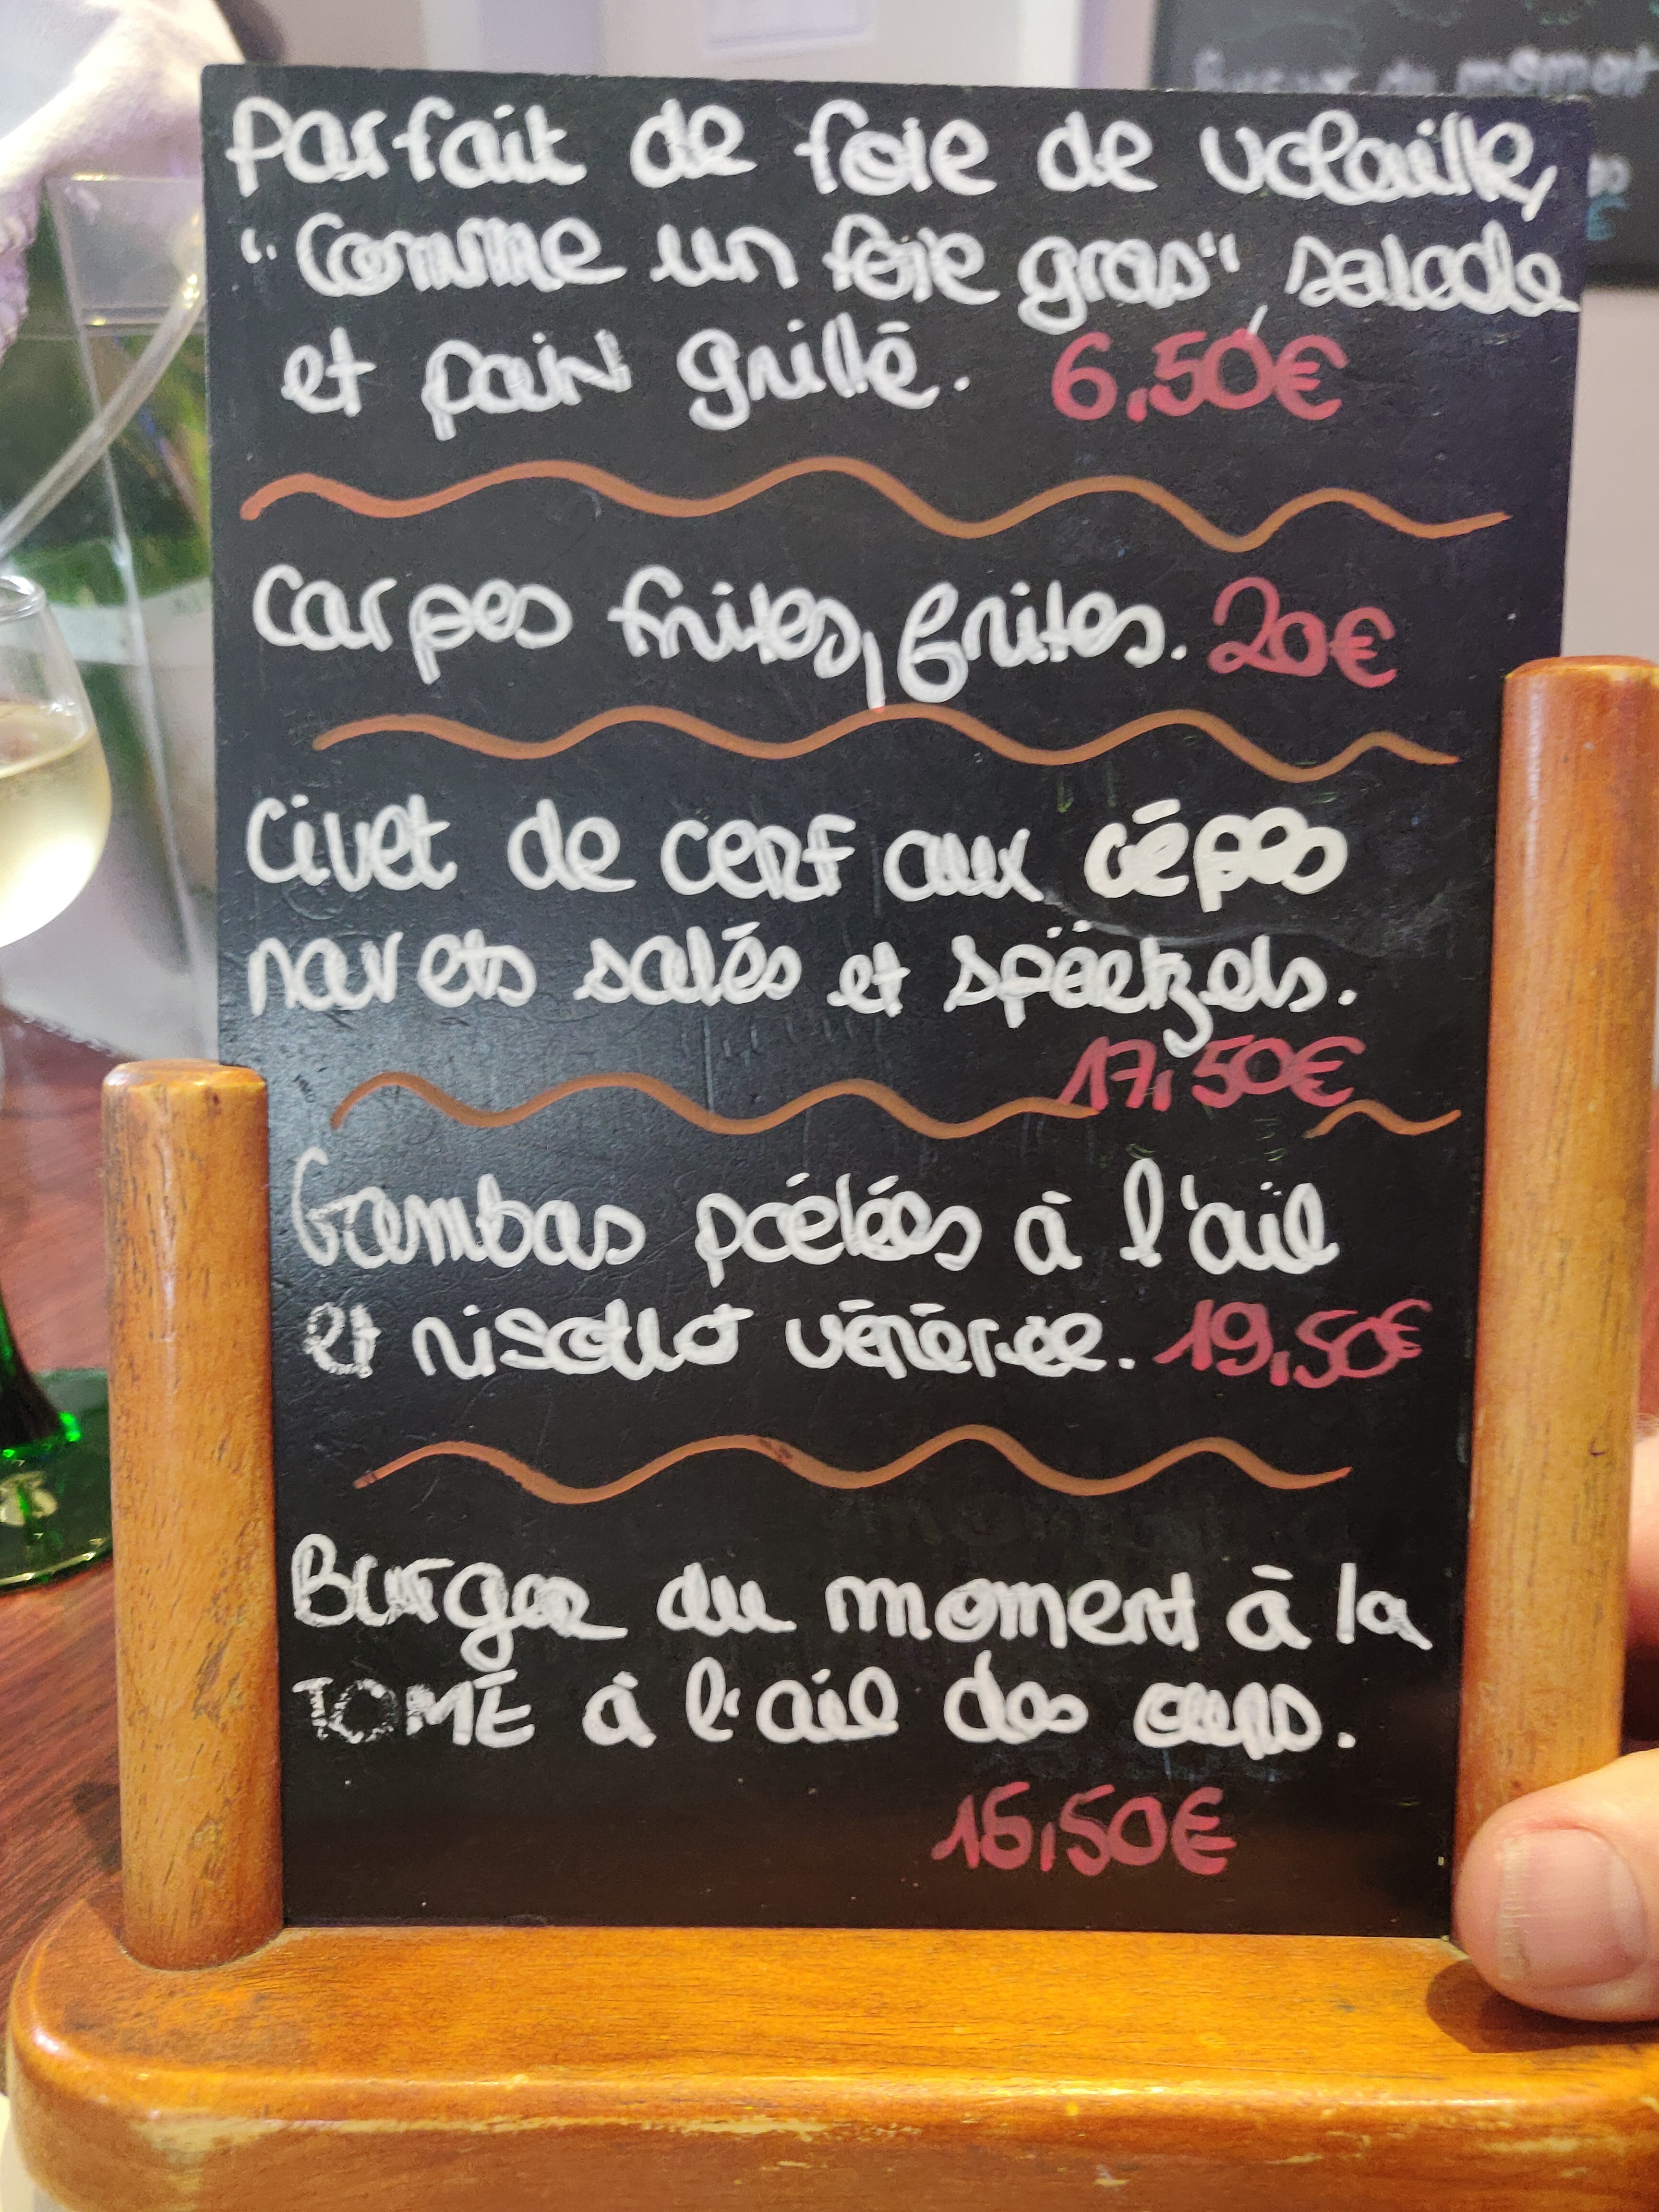 Parfait de foie de volaille,
"Comme un foie gras" salade
et pain grillé. 6,50€
Carpes frites, frites. 20€
Civet de cerf aux cépes
navets salés et späetzels.
17,50€
Gambas poélées à l'ail
et risotto vénérée. 19,50€
Burger du moment à la
TOME à l'ail des ours.
16,50€
du moment